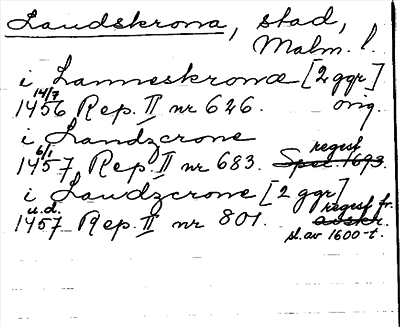 Landskrona, stad,
Malm. l.
i Lanneskronæ [2 ggr]
14/7
1456 Rep. II nr 626. orig.
i Landzcrone
6/1 regest
1457 Rep. II nr 683. Spec 1693.
i Landzcrone [2 ggr]
u.d. regest fr.
1457 Rep. II nr 801. avskr.
sl. av 1600-t.